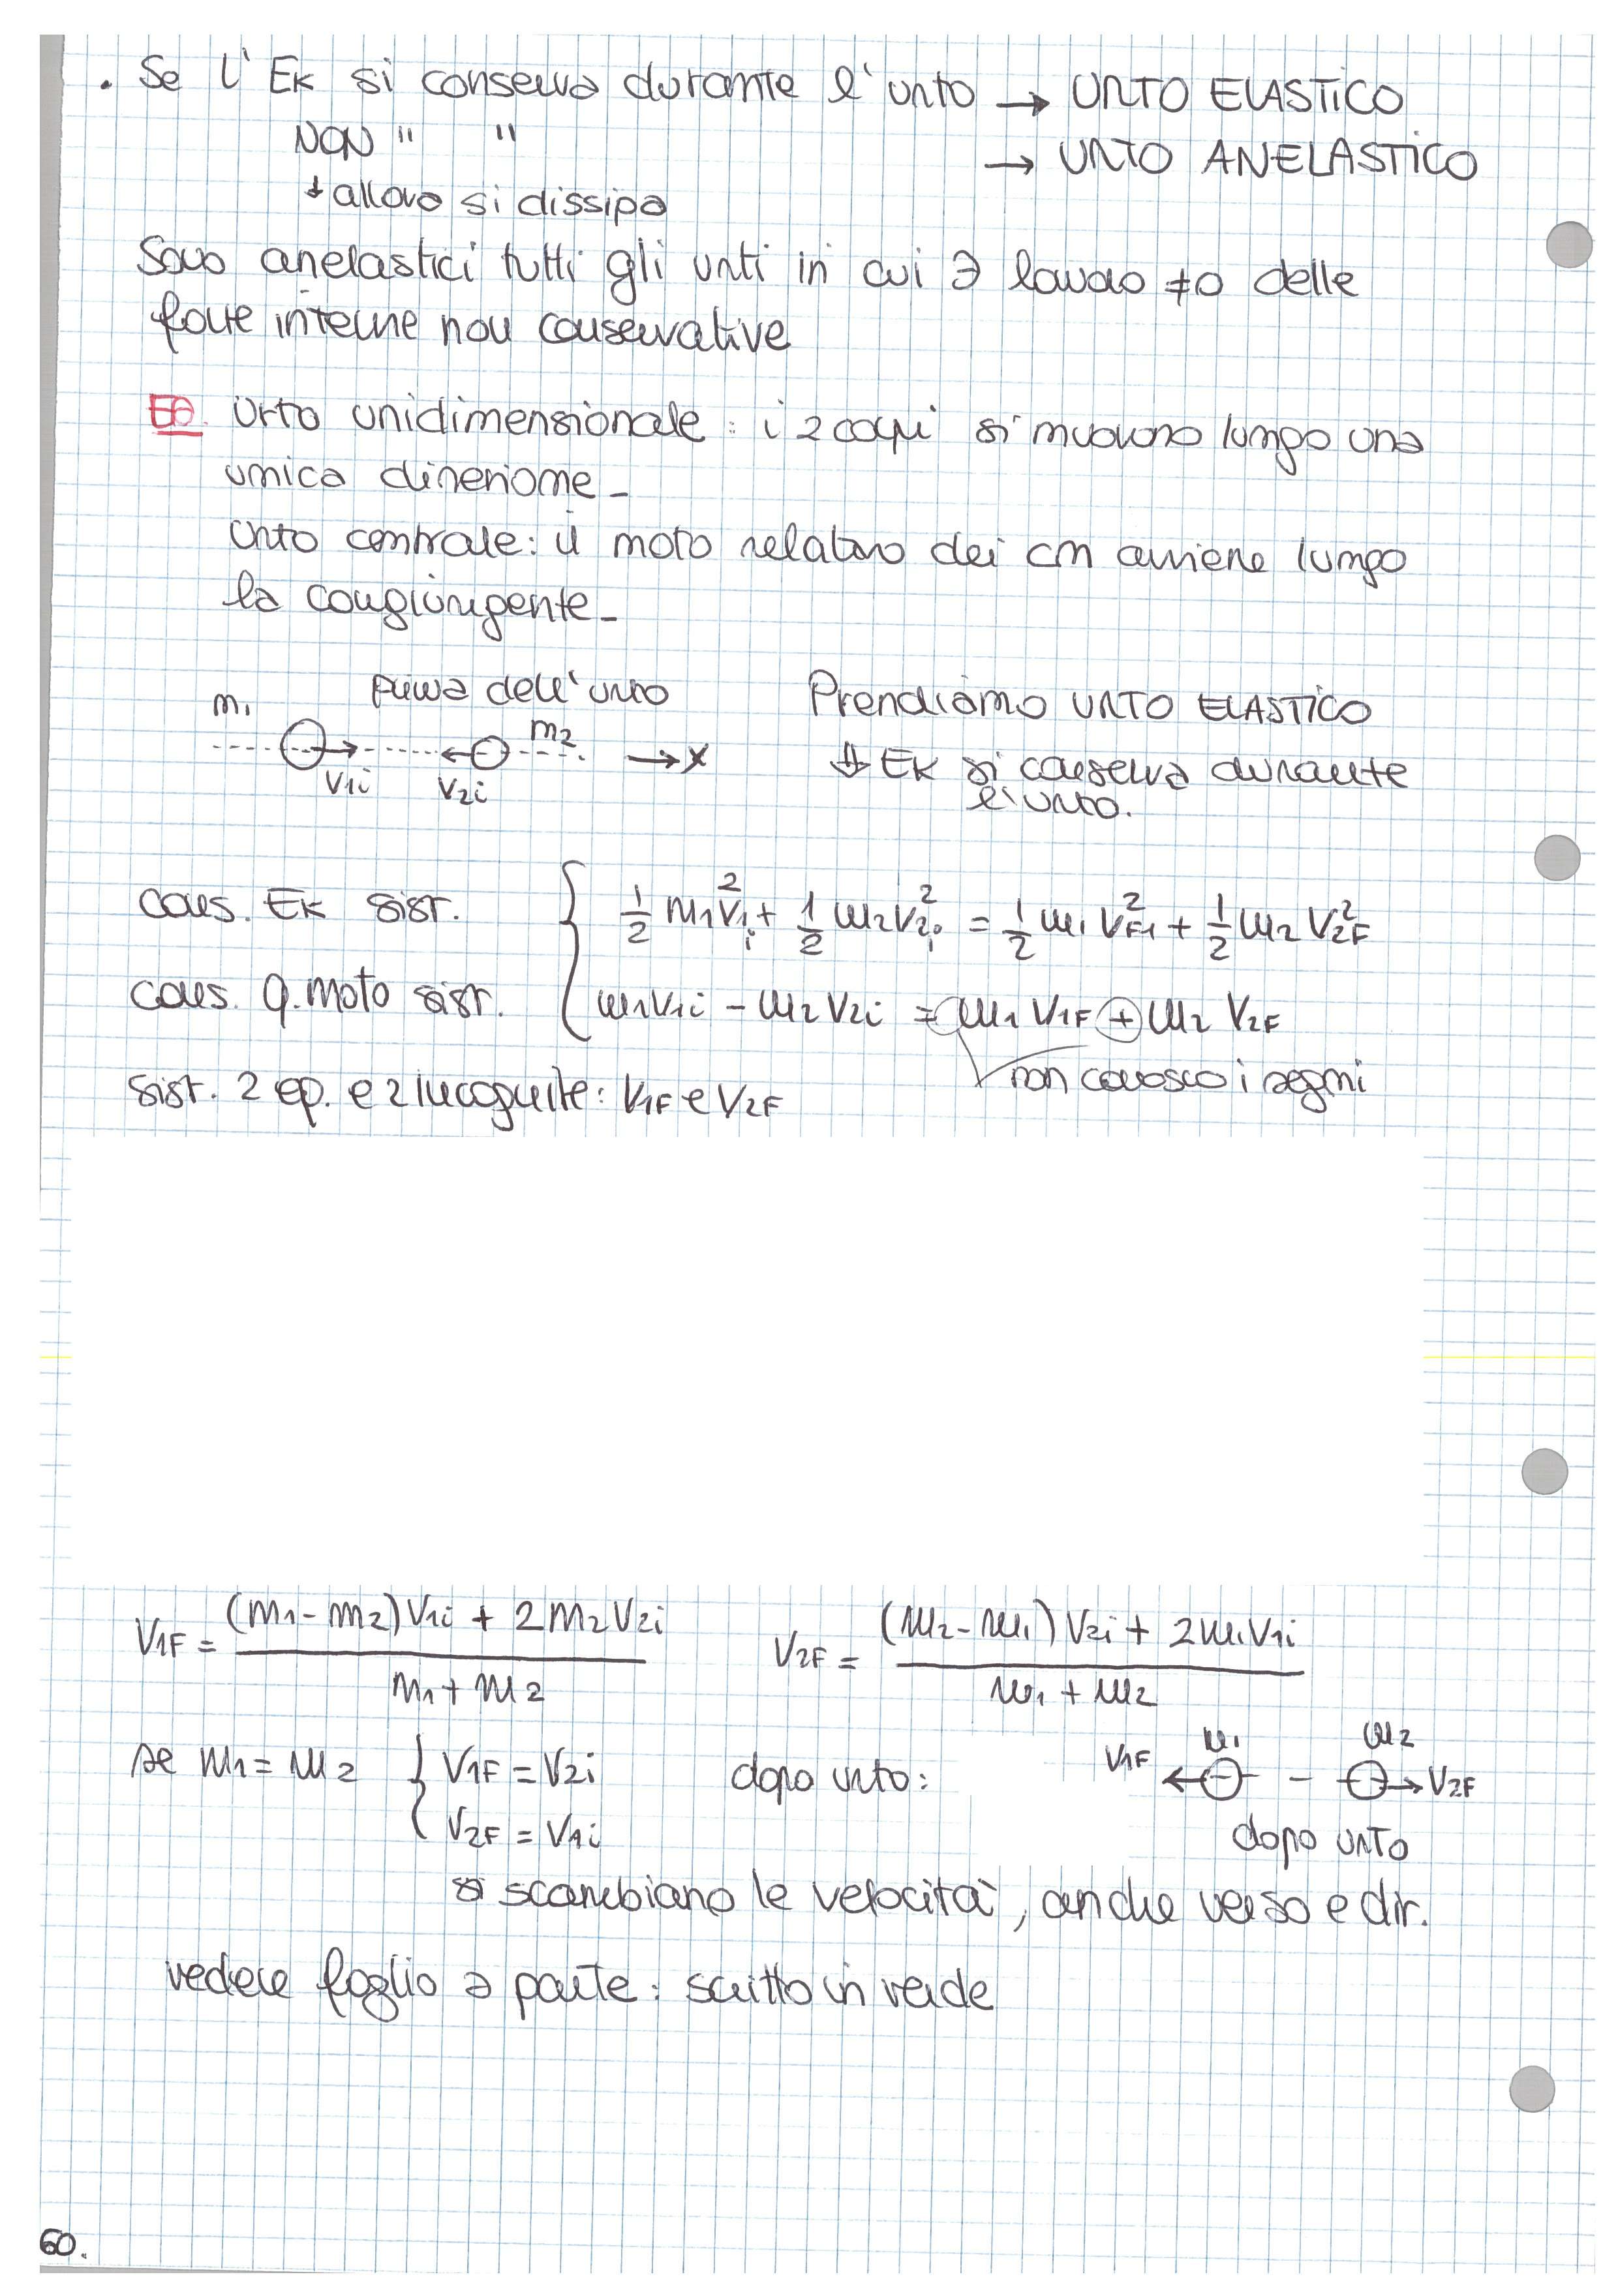 . Se l' Ek si conserva durante l'urto → URTO ELASTICO
NON " " → URTO ANELASTICO
↓ allora si dissipa
Sono anelastici tutti gli urti in cui ∃ lavoro ≠0 delle
forze interne non conservative
ES. Urto unidimensionale: i 2 corpi si muovono lungo una
unica direzione_
Urto centrale: il moto relativo dei cm avviene lungo
la congiungente_
prima dell'urto
m1 m2
V1i V2i → x
Prendiamo URTO ELASTICO
⇓ Ek si conserva durante
l'urto.
cons. Ek sist. { 1/2 m1 V1i² + 1/2 m2 V2i² = 1/2 m1 VF1² + 1/2 m2 V2F²
cons. q. moto sist. { m1V1i - m2 V2i = m1 V1F + m2 V2F
non conosco i segni
sist. 2 eq. e 2 incognite: V1F e V2F
V1F = (m1 - m2) V1i + 2 m2 V2i / m1 + m2
V2F = (m2 - m1) V2i + 2 m1 V1i / m1 + m2
se m1 = m2 { V1F = V2i
V2F = V1i
dopo urto:
V1F m1 m2 V2F
dopo urto
si scambiano le velocità, anche verso e dir.
vedere foglio a parte: scritto in verde
60.